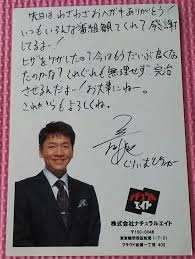 先日はわざわざお入ガキありがとう!
いつもいろんな番組観てくれて感謝し
てるよー!
ヒザをケガしたの?今はもうだいぶ良くなっ
たのかな?くれぐれも無理せず完治
させるんだよー!お大事にねー。
これからもよろしくね。
くりぃむしちゅー
ナチュラル
エイト
株式会社ナチュラルエイト
〒150-0046
東京都渋谷区松濤1-7-3
プラウド松濤一丁目402